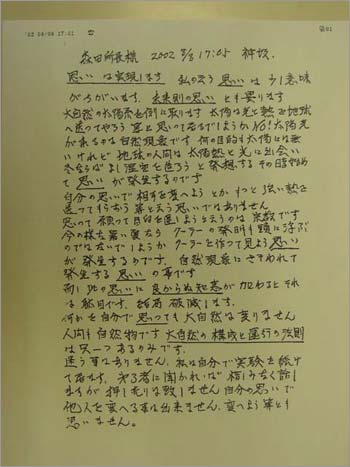 '02 08/08 17:01
森田所長様 2002 8/8 17:05
思いは実現します 私の云う思いは少し意味
がちがいます。法則の思いとも異ります
大自然の太陽系を例に取ります 太陽は光と熱を地球
へ送ってやろう等と思って居るでしょうかNO! 太陽光
があるのは自然現象です 何の目的も太陽には無
いけれど地球の人間は太陽熱と光に出会い
冬ならばよし温室を造ろうと発想するその時初め
て思いが発生するのです
自分の思いで相手を変へようとかもっと強い熱を
送ってもらおう等と云う思いではありません
思って願って目的を達しようと云うのは宗教です
今の様な暑い夏なら クーラーの発明も頭に浮ぶ
のではないでしょうか クーラーを作って見よう思い
が発生するのです。自然現象にさそわれて
発生する思いの事です
而し此の思いに良からぬ知恵が加わるとそれ
は駄目です。結局破滅します。
何かを自分で思っても大自然は変りません
人間も自然物です 大自然の構成と運行の法則
は只一つあるのみです。
迷う事はありません。私は自分で実験を続け
て居ます。来る者に聞かれれば惜しみなく話し
ますが押し売りは致しません 自分の思いで
他人を変へる事は出来ません。変へよう等とも
思いません。